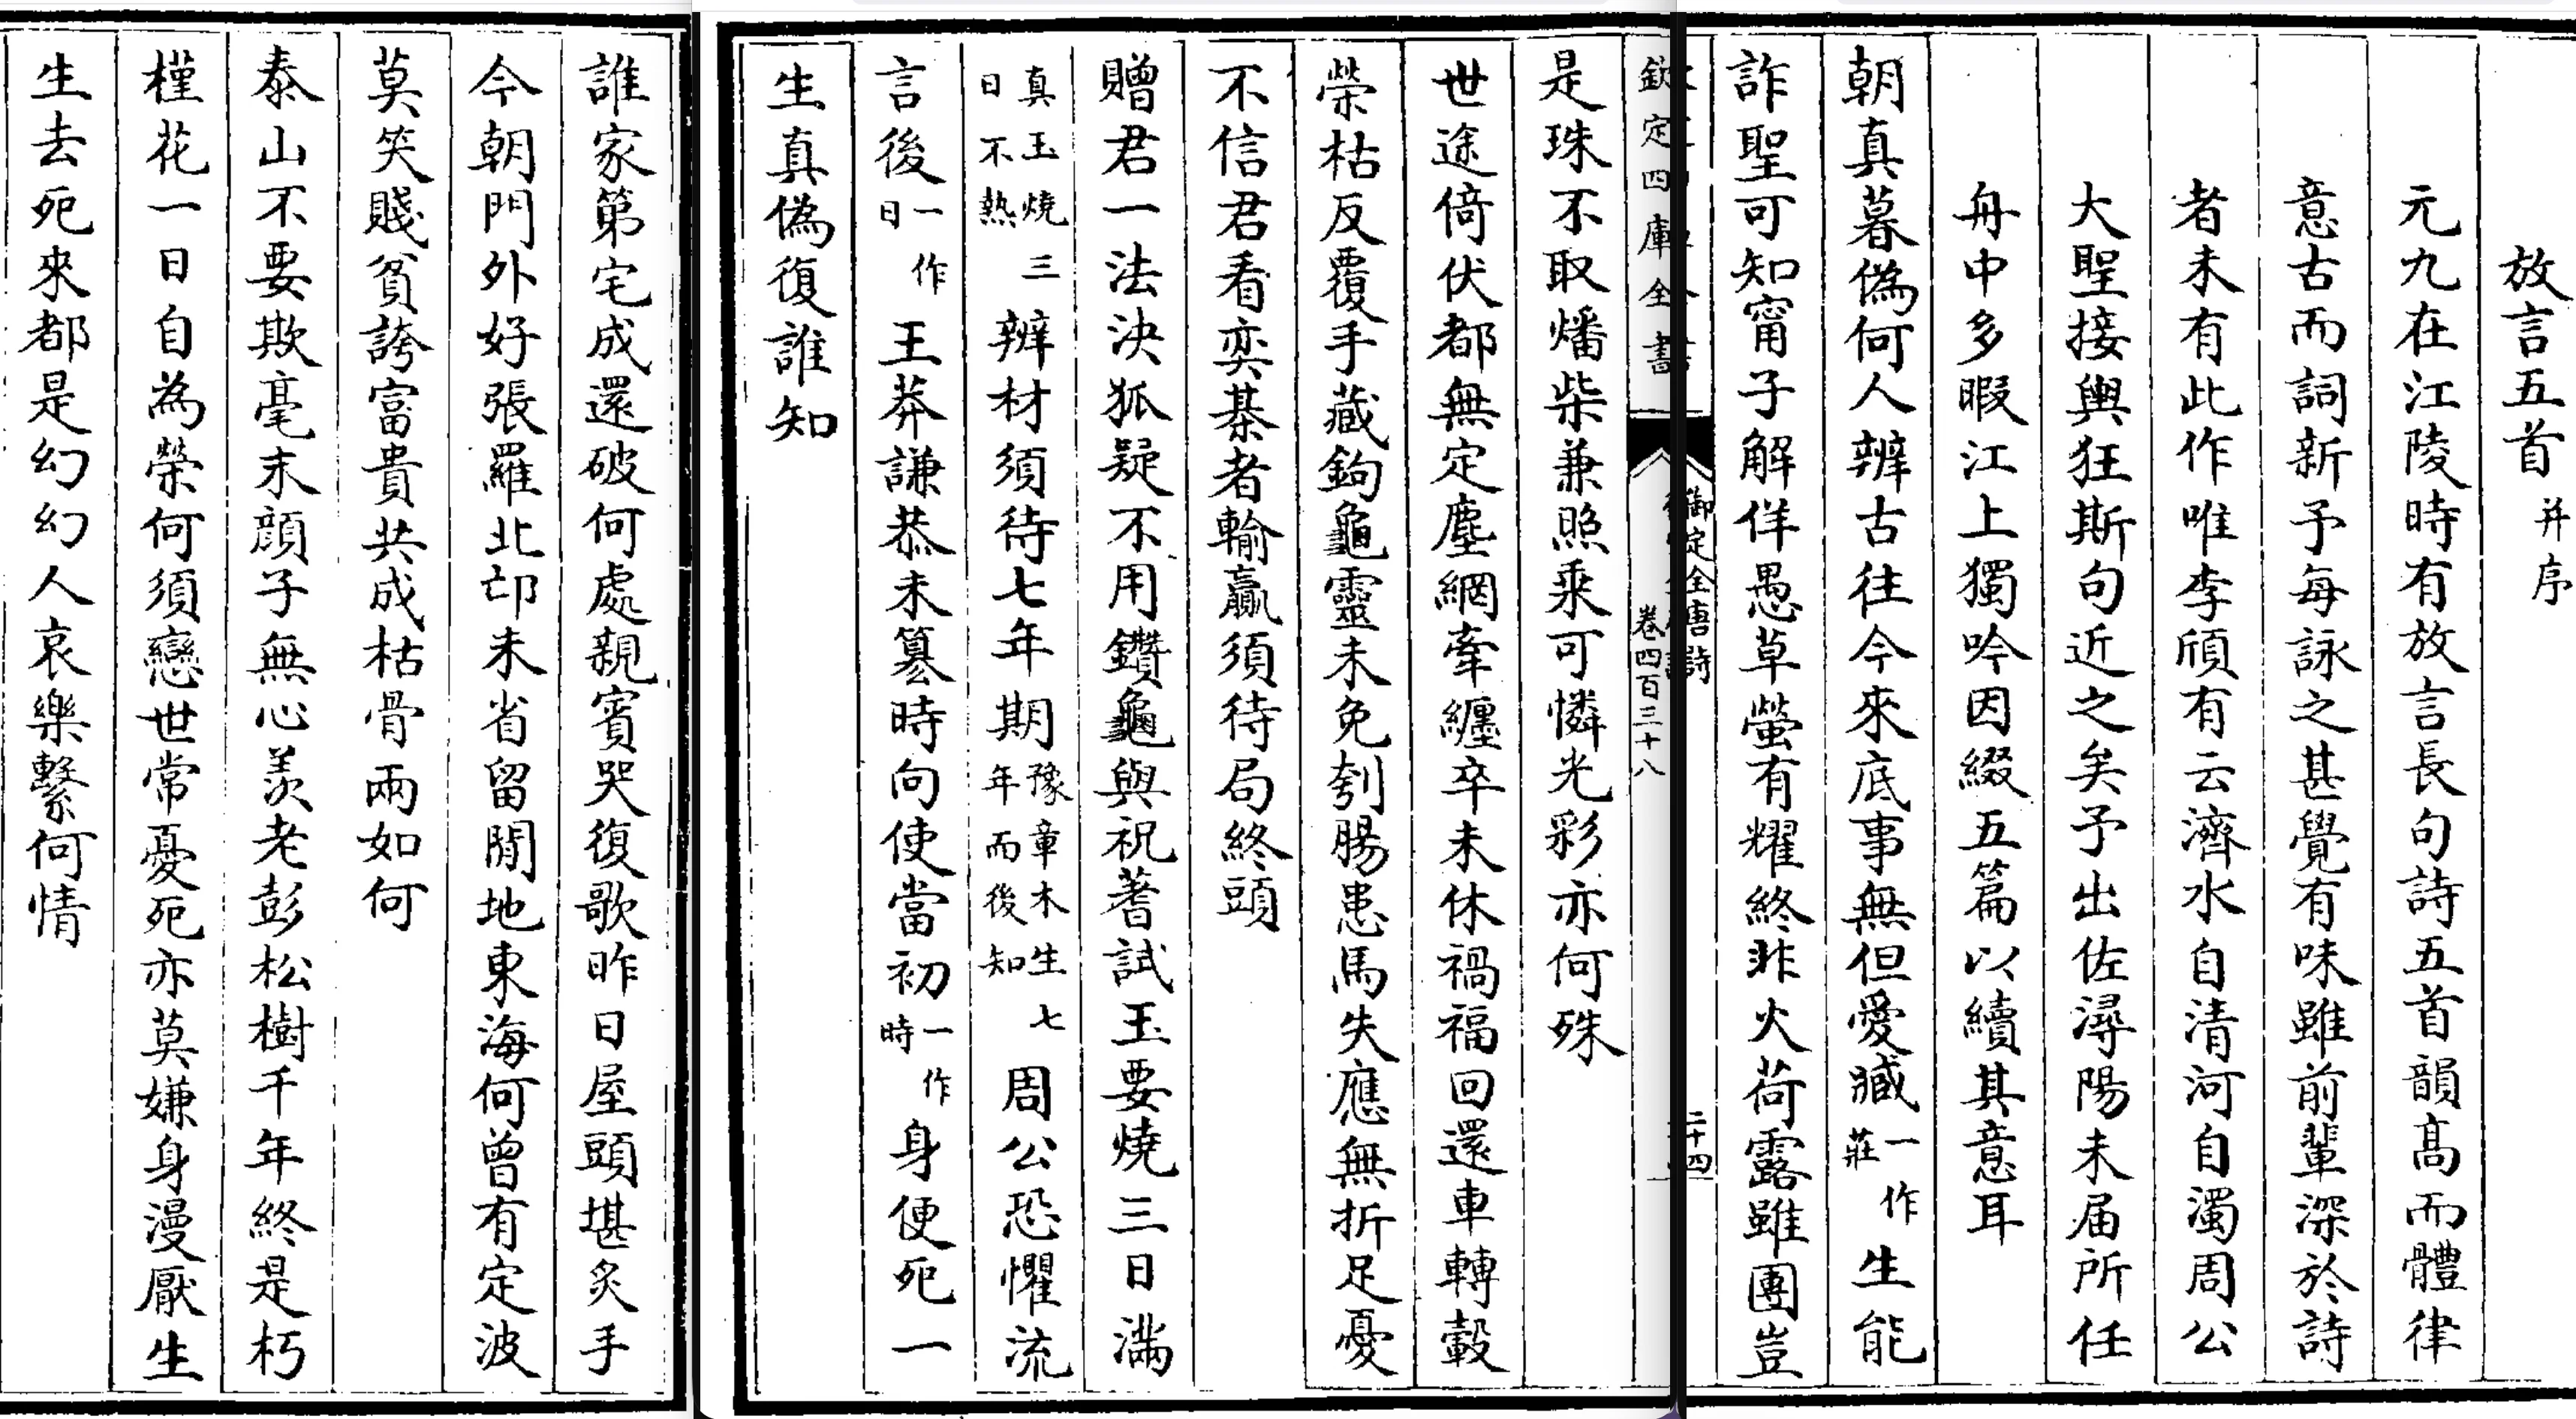 放言五首并序
元九在江陵時有放言長句詩五首韻髙而體律
意古而詞新予每詠之甚覺有味雖前輩深於詩
者未有此作唯李頎有云濟水自清河自濁周公
大聖接輿狂斯句近之矣予出佐潯陽未届所任
舟中多暇江上獨吟因綴五篇以續其意耳
朝真暮偽何人辨古往今來底事無但愛臧一作莊生能
詐聖可知甯子解佯愚草螢有耀終非火荷露雖團豈
欽定四庫全書
御定全唐詩
卷四百三十八
二十四
是珠不取燔柴兼照乘可憐光彩亦何殊
世途倚伏都無定塵網牽纏卒未休禍福回還車轉轂
榮枯反覆手藏鉤龜靈未免刳腸患馬失應無折足憂
不信君看奕棊者輸贏須待局終頭
贈君一法決狐疑不用鑽龜與祝蓍試玉要燒三日滿
真玉燒三日不熱辨材須待七年期豫章木生七年而後知周公恐懼流
言後一作日王莽謙恭未簒時向使當初一作時身便死一
生真偽復誰知
誰家第宅成還破何處親賓哭復歌昨日屋頭堪炙手
今朝門外好張羅北邙未省留閒地東海何曾有定波
莫笑賤貧誇富貴共成枯骨兩如何
泰山不要欺毫末顔子無心羨老彭松樹千年終是朽
槿花一日自為榮何須戀世常憂死亦莫嫌身漫厭生
生去死來都是幻幻人哀樂繫何情